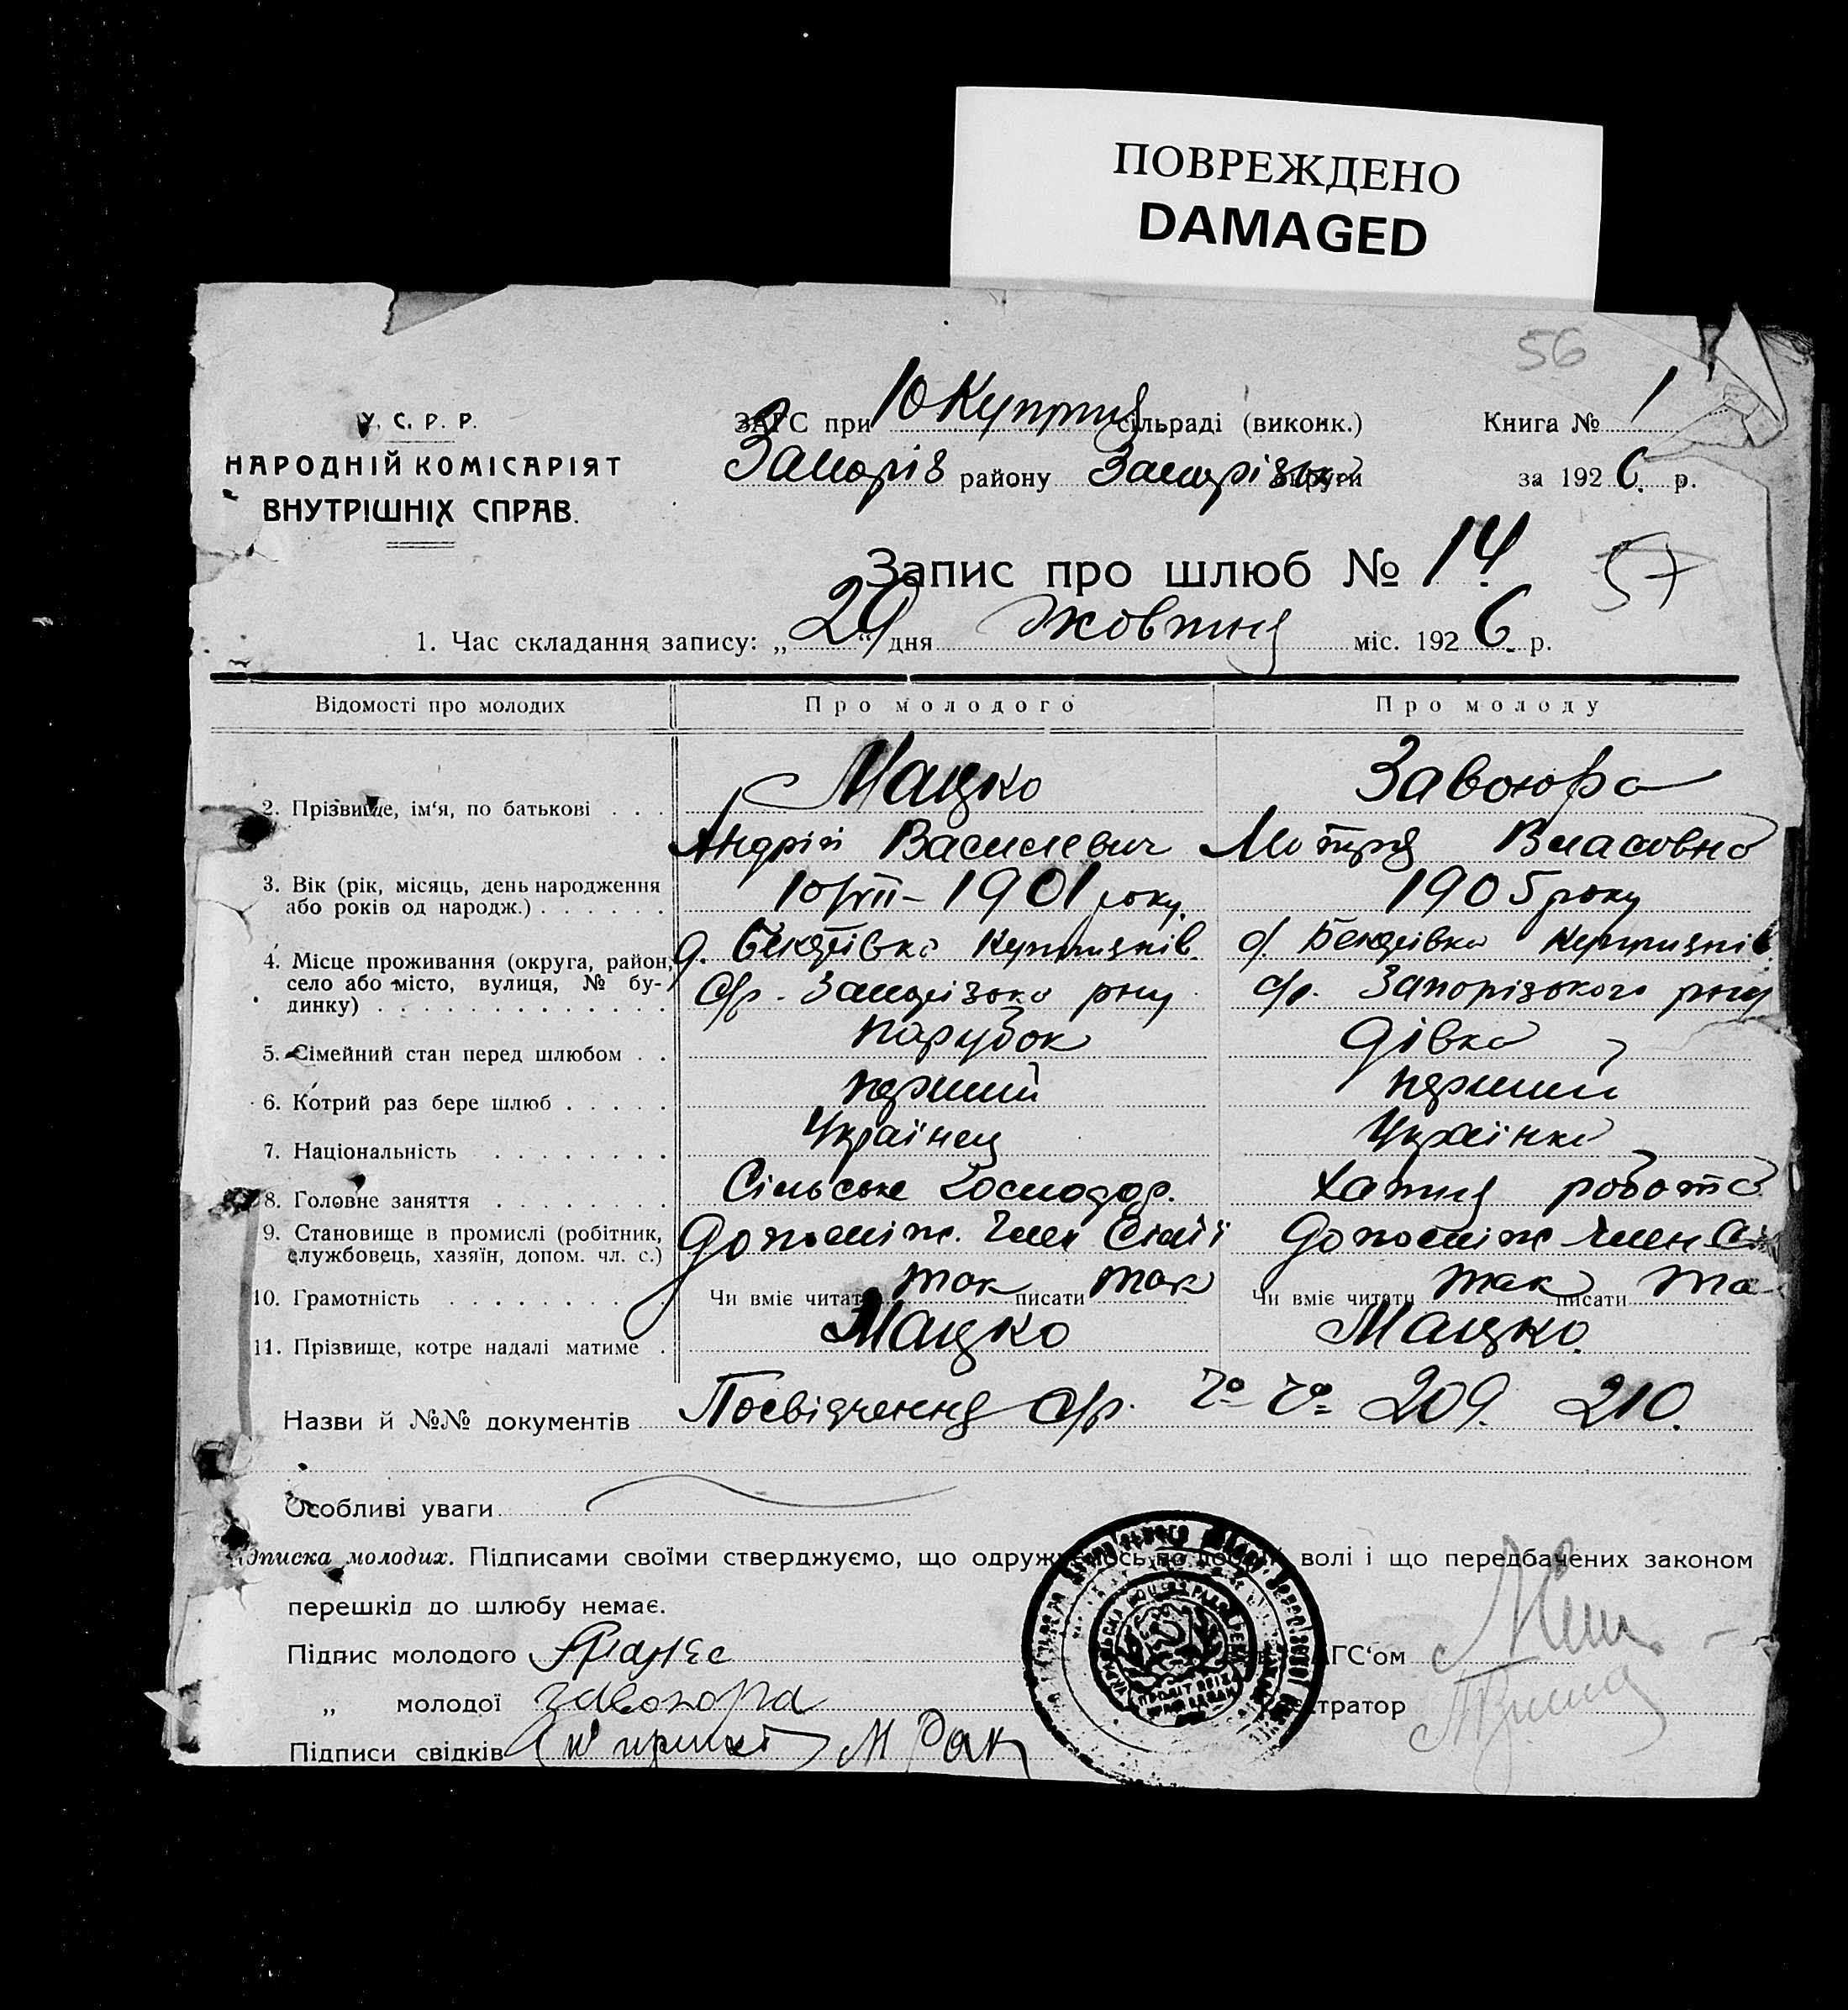 ПОВРЕЖДЕНО
DAMAGED
56
У. С. Р. Р.
НАРОДНІЙ КОМІСАРІЯТ
ВНУТРІШНІХ СПРАВ.
ЗАГС при сільраді (виконк.)
Запоріз району Запорізької округи
Книга № 1
за 1926 р.
Запис про шлюб № 14
57
1. Час складання запису: „ “ дня Жовтня міс. 1926 р.
Відомості про молодих Про молодого Про молоду
2. Прізвище, ім‘я, по батькові . . . Мацко Завоюра
Андрій Василевич Мотря Власовна
3. Вік (рік, місяць, день народження
або років од народж.) . . . . . . 10/VII – 1901 року. 1905 року
4. Місце проживання (округа, район,
село або місто, вулиця, № бу-
динку) . . . . . . . . . . . . .
с/р. Запорізького р-ну
5. Сімейний стан перед шлюбом . . парубок дівка
6. Котрий раз бере шлюб . . . . . перший перший
7. Національність . . . . . . . . Українец Українка
8. Головне заняття . . . . . . . . Сільське господар. Хатня робота
9. Становище в промислі (робітник,
службовець, хазяїн, допом. чл. с.) Допоміж. член Сімії Допоміж член
10. Грамотність . . . . . . . . Чи вміє читати так писати так Чи вміє читати так писати та
11. Прізвище, котре надалі матиме . Мацко Мацко.
Назви й №№ документів Посвідчення с/р. № № 209. 210.
Особливі уваги
молодих. Підписами своїми стверджуємо, що волі і що передбачених законом
перешкід до шлюбу немає.
Підпис молодого
„ молодої завоюра
Підписи свідків М Рак